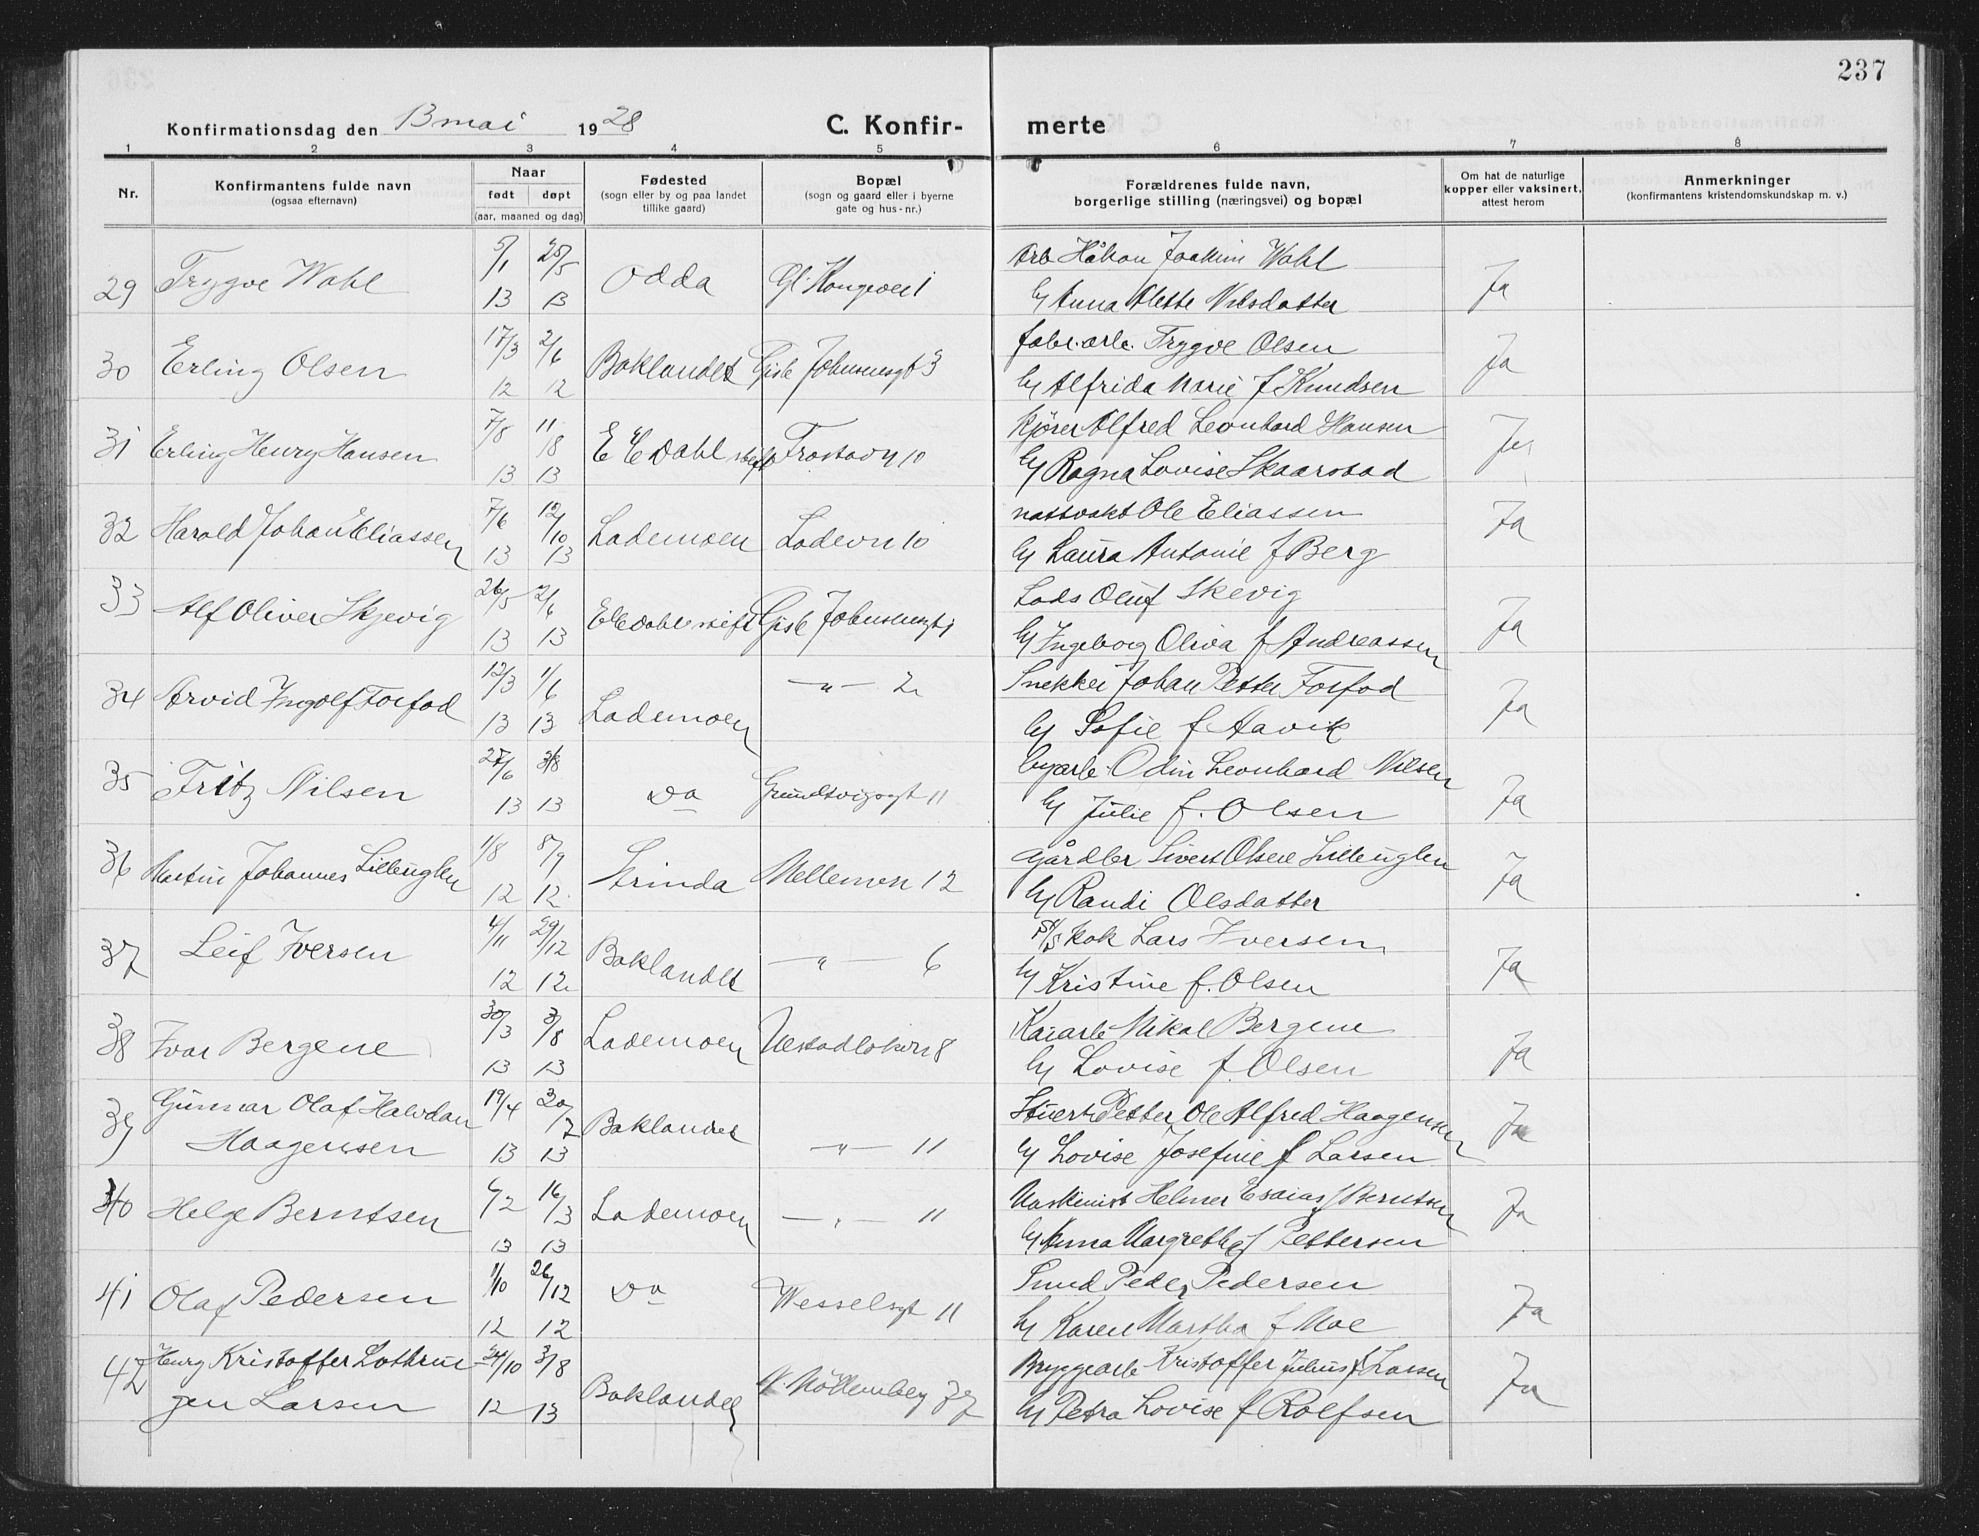 237
Konfirmationsdag den 13 mai 1928 C. Konfirmerte
1 2 3 4 5 6 7 8
Nr. Konfirmantens fulde navn (ogsaa efternavn) Naar født døpt (aar, maaned og dag) Fødested (sogn eller by og paa landet tillike gaard) Bopæl (sogn og gaard eller i byerne gate og hus-nr.) Forældrenes fulde navn, borgerlige stilling (næringsvei) og bopæl Om hat de naturlige kopper eller vaksinert, attest herom Anmerkninger (konfirmantens kristendomskundskap m. v.)
29 Trygve Wahl 5/1 13 25/5 13 Odda Gl. Kongevei 1 Arb Håkon Joakim Wahl
Anna Alette Nilsdatter Ja
30 Erling Olsen 17/3 12 2/6 12 Baklandet Gisle Johnsensgt 3 fabr.arb. Trygve Olsen
Alfrida Marie f Knudsen Ja
31 Erling Henry Hansen 7/8 13 11/8 13 E C Dahl stift Frostavn 10 Kjører Alfred Leonhard Hansen
Ragna Lovise Skaarstad Ja
32 Harald Johan Eliassen 7/6 13 12/10 13 Lademoen Ladevn 10 nattvakt Ole Eliassen
Laura Antonie f Berg Ja
33 Alf Oliver Skjevig 26/5 13 2/6 13 E C Dahl stift Gisle Johnsensgt 1 Lods Oluf Skevig
Ingeborg Oliva f Andreassen Ja
34 Arvid Ingolf Forfod 12/3 13 1/6 13 Lademoen — " — 2 Snekker Johan Petter Forfod
Sofie f Aavik Ja
35 Fritz Nilsen 27/6 13 3/8 13 Do Grundtvigsgt 11 byarb. Odin Leonhard Nilsen
Julie f. Olsen Ja
36 Martin Johannes Lilleuglen 1/8 12 8/9 12 Strinda Mellemvn 12 gårdbr Sivert Olsen Lilleuglen
Randi Olsdatter Ja
37 Leif Iversen 4/11 12 29/12 12 Baklandet — " — 6 kok Lars Iversen
Kristine f. Olsen Ja
38 Ivar Bergene 30/3 13 3/8 13 Lademoen 8 Kaiarb Mikal Bergene
Lovise f. Olsen Ja
39 Gunnar Olaf Halvdan 19/4 13 20/7 13 Baklandet — " — 11 Stuert Petter Ole Alfred Haagensen
Haagensen Lovise Josefine f Larsen Ja
40 Helge Berntsen 6/2 13 16/3 13 Lademoen — " — 11 Maskinist Helmer Esaias Berntsen
Anna Margrethe f Pettersen Ja
41 Olaf Pedersen 1/10 12 26/12 12 Do Wesselsgt 11 Smed Peder Pedersen
Karen Martha f Moe Ja
42 Henry Kristoffer 24/10 12 3/8 13 Baklandet Möllenberg 37 Bryggearb Kristoffer Julius Larsen
gen Larsen Petra Lovise f Rolfsen Ja